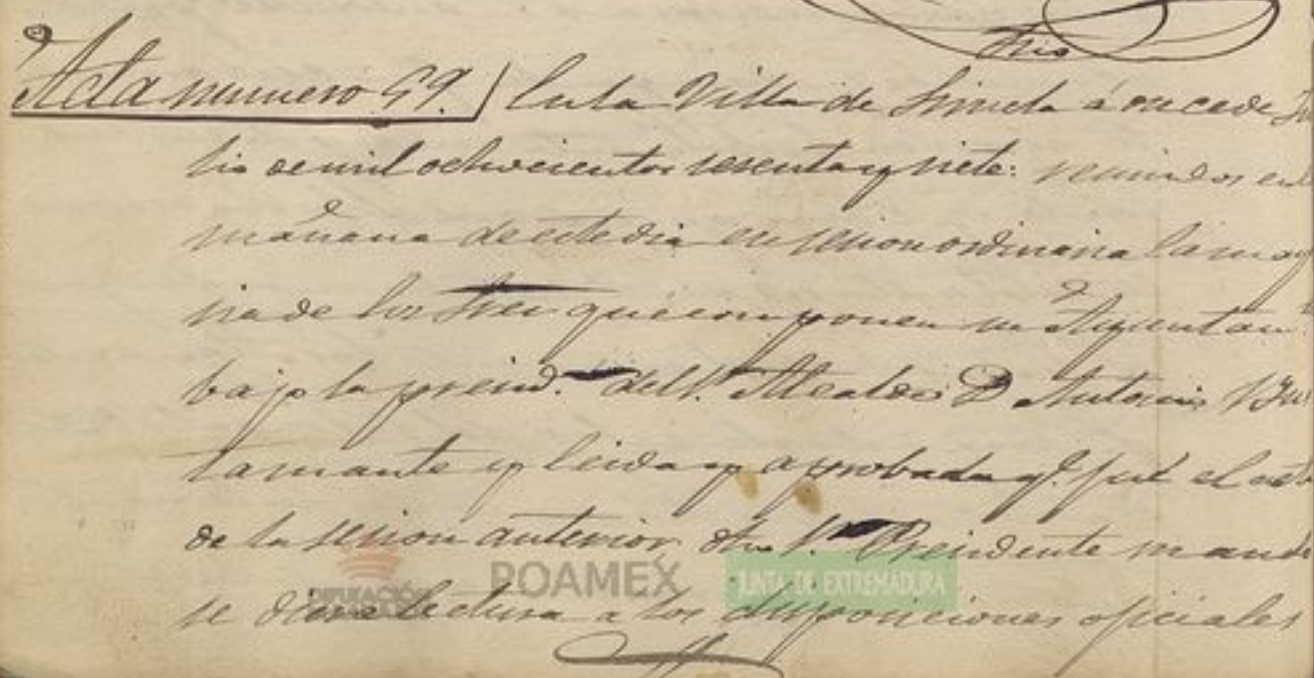 Srio
Acta numero 59. En la Villa de á once de Ju
lio de mil ochocientos sesenta y siete: reunidos en la
mañana de este dia en sesion ordinaria la mayo
ria de los Sres que componen su Ayuntam.
bajo la presid. del S. Alcalde D Antonio Bus
tamante y leida y aprobada q. fué el acta
de la sesion anterior, dho S. Presidente mandó
se diera lectura a las disposiciones oficiales
DIPUTACIÓN
POAMEX
JUNTA DE EXTREMADURA